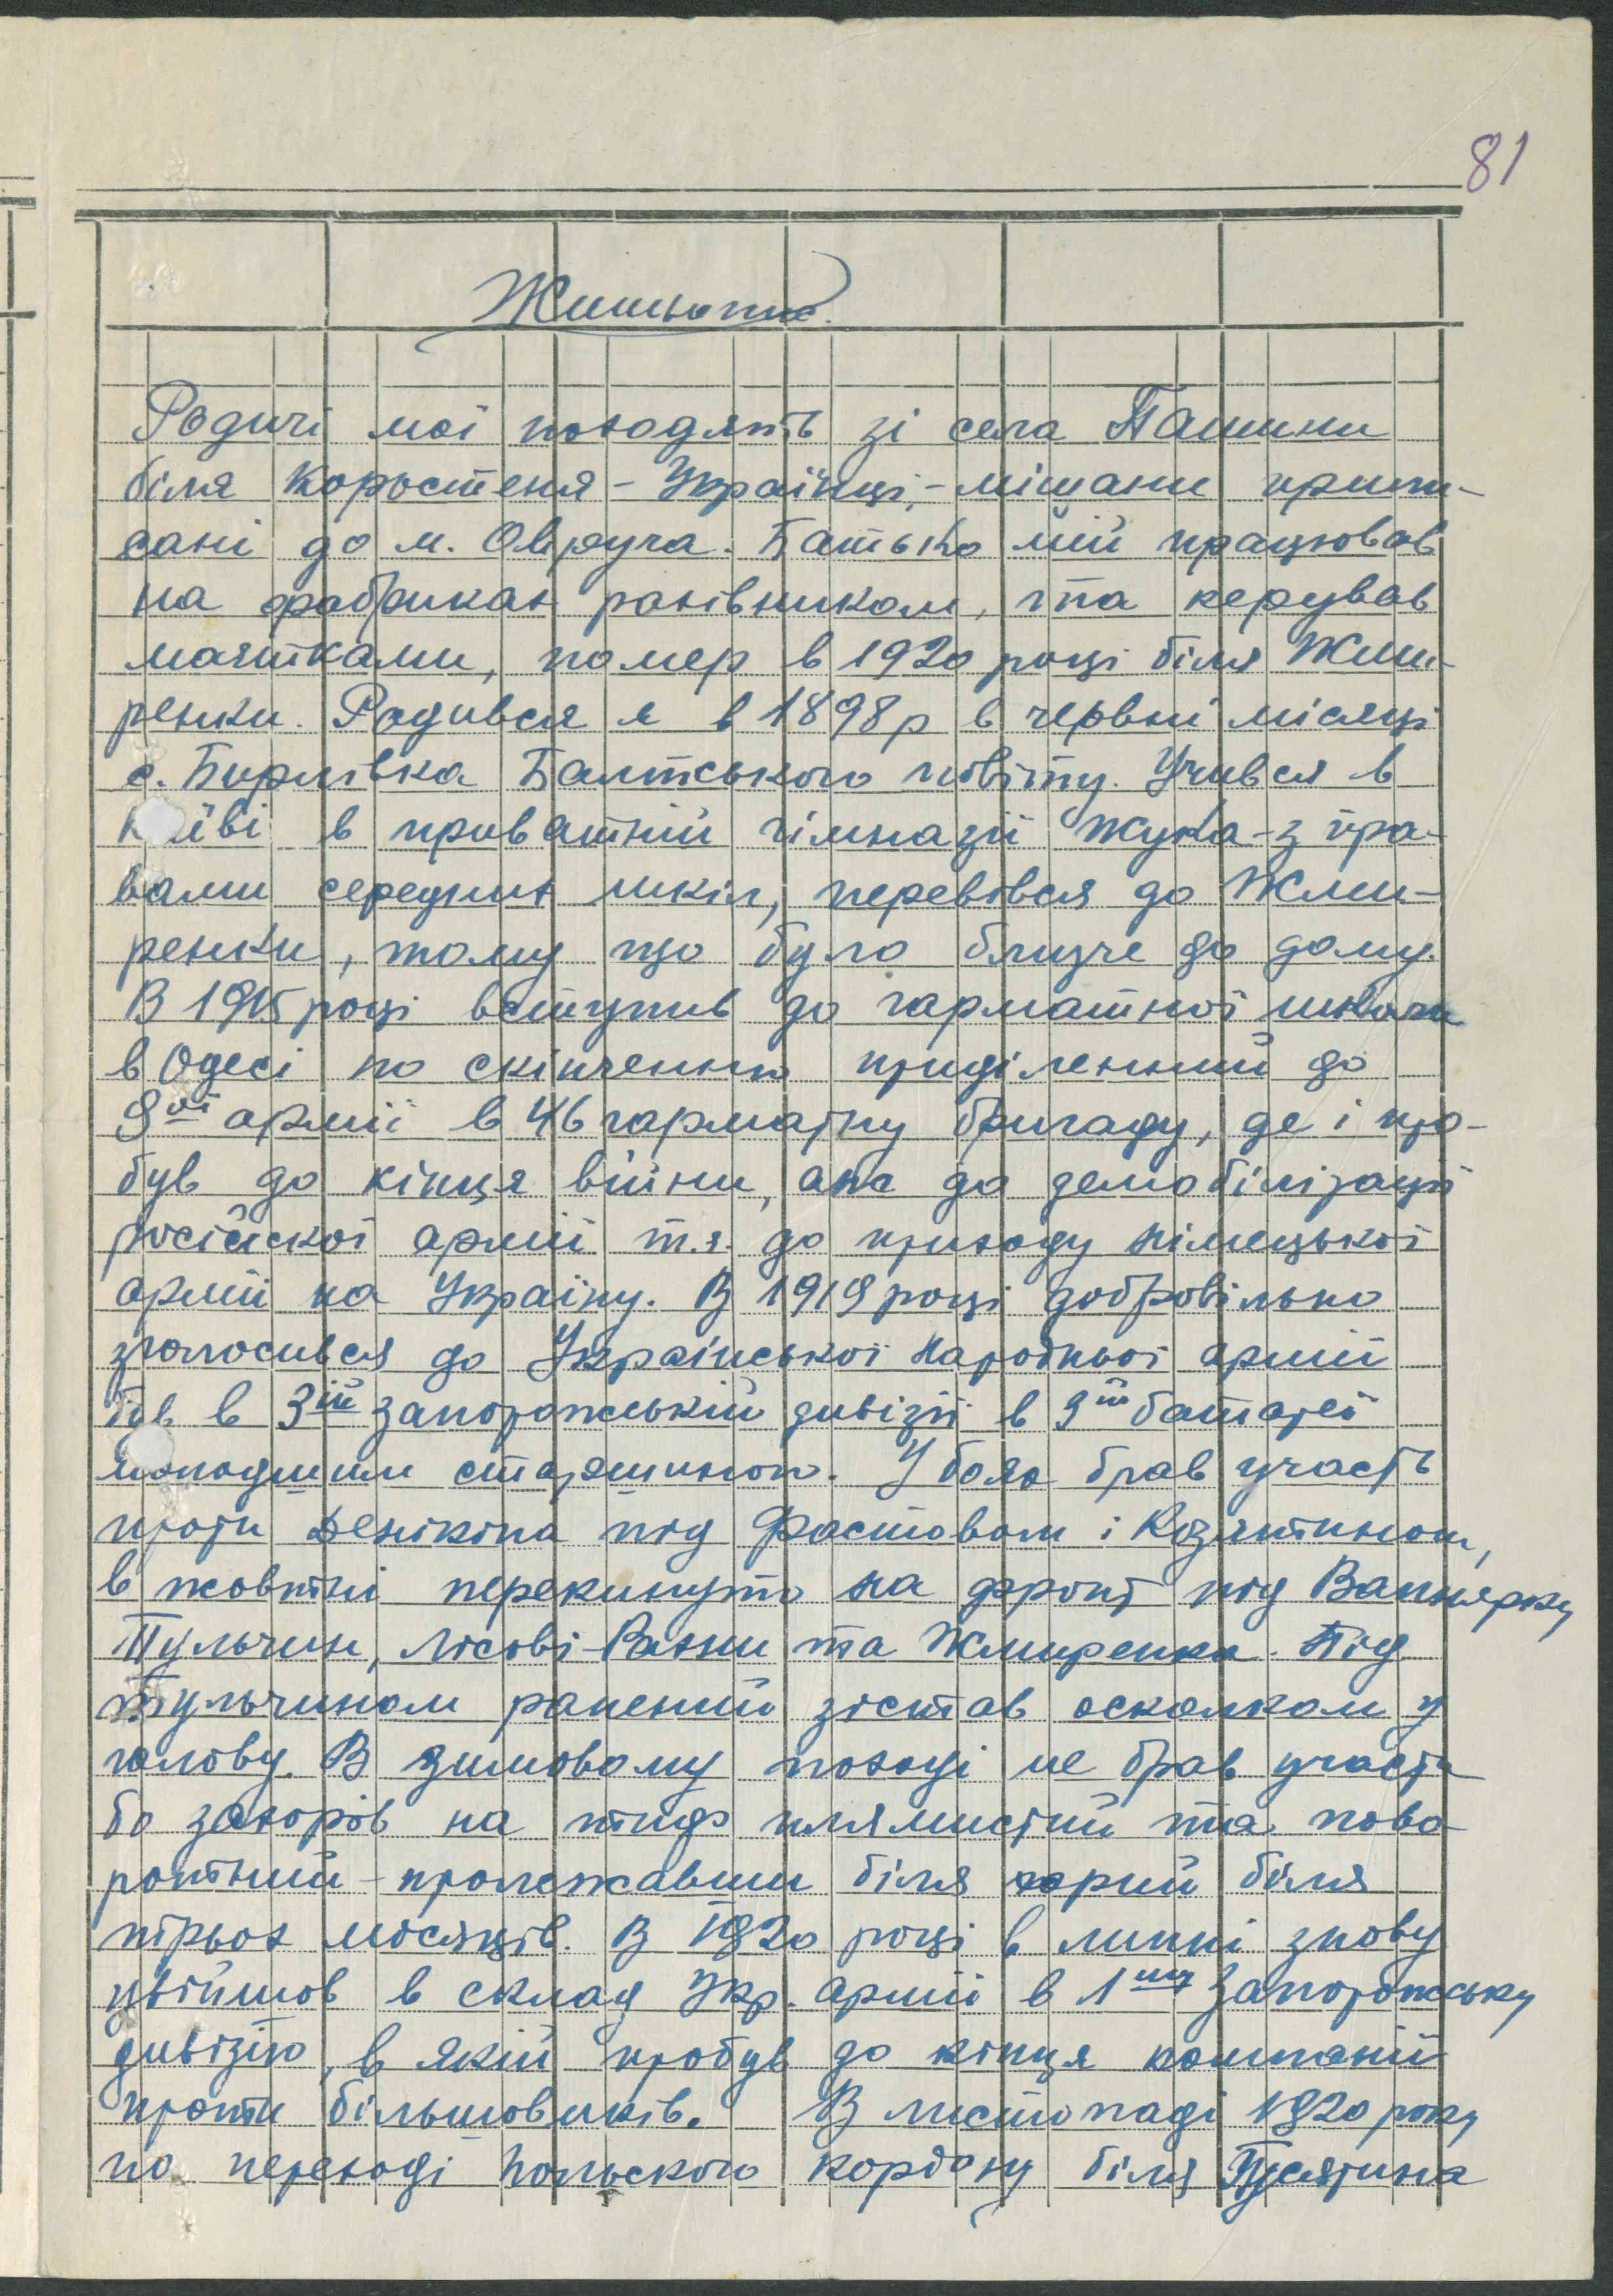 81
Життьопис.
Родичі мої походять зі села Пашини
біля Коростеня - Українці, - міщани припи-
сані до м. Овруча. Батько мій працював
на фабриках рахівником, та керував
маятками, помер в 1920 році біля Жме-
ренки. Родився я в 1898 р в червні місяці
с. Бирлівка Балтського повіту. Учився в
Київі в приватній гімназії Жука - з пра-
вами середних шкіл, перевівся до Жме-
ренки, тому що було близче до дому.
В 1915 році вступив до гарматної школи
в Одесі по скінченню приділенний до
9ої армії в 46 гарматну бригаду, де і про-
був до кінця війни, аж до демобілізації
російскої армії т.я. до приходу німецької
армії на Україну. В 1919 році добровільно
зголосився до Української Народньої армії
був в 3ій запорожській дивізії в 9ій батареї
молодшим старшиною. У боях брав участь
проти Денікіна під Фастовом і Козятином,
в жовтні перекинуто на фронт під Вапнярку
Тульчин, Лісові-Рахни та Жмиренка. Під
Тульчином ранений зістав осколком у
голову. В зимовому поході не брав участи
бо захорів на тиф плямистий та пово-
ротний - пролежавши біля армії біля
трьох місяців. В 1920 році в липні знову
увійшов в склад Укр. армії в 1шу Запорожську
дивізію, в якій пробув до кінця компанії
проти більшовиків. В листопаді 1920 року
по переході польского кордону біля Гусятина